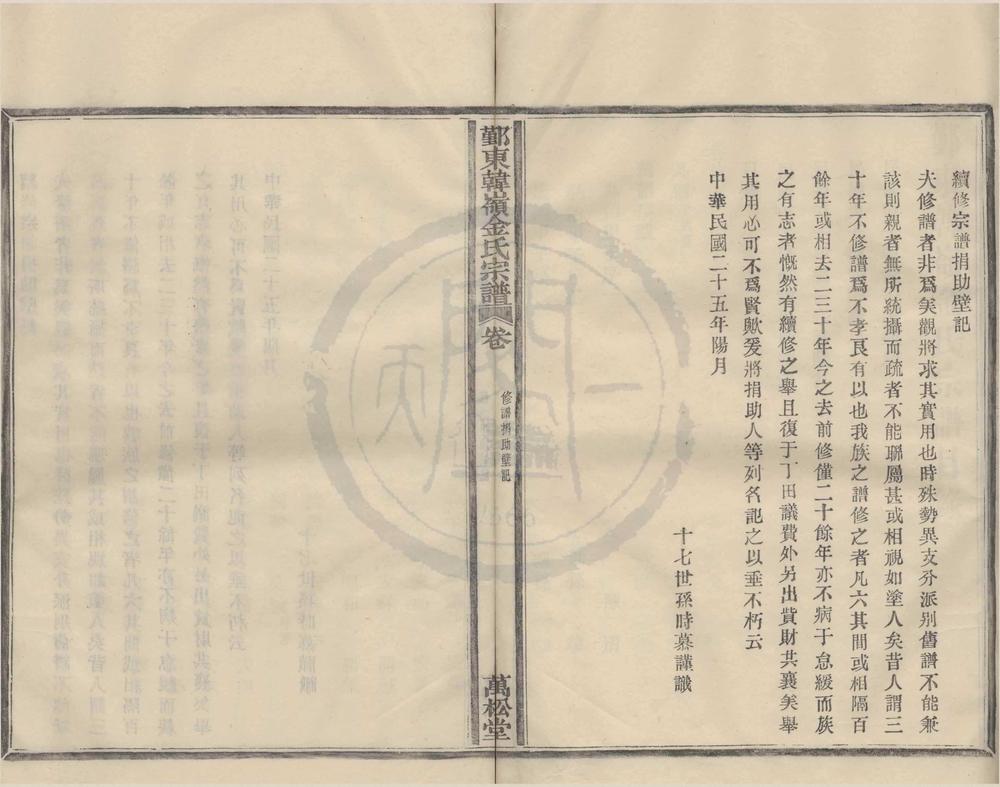 續修宗譜捐助壁記
夫修譜者非爲美觀將求其實用也時殊勢異支分派别舊譜不能兼
該則親者無所統攝而疏者不能聯屬甚或相視如塗人矣昔人謂三
十年不修譜爲不孝良有以也我族之譜修之者凡六其間或相隔百
餘年或相去二三十年今之去前修僅二十餘年亦不病于怠緩而族
之有志者慨然有續修之舉且復于丁田議費外另出貲財共襄美舉
其用心可不爲賢歟爰將捐助人等列名記之以垂不朽云
中華民國二十五年陽月
十七世孫時慕謹識
鄞東韓嶺金氏宗譜 卷
修譜捐助壁記
萬松堂